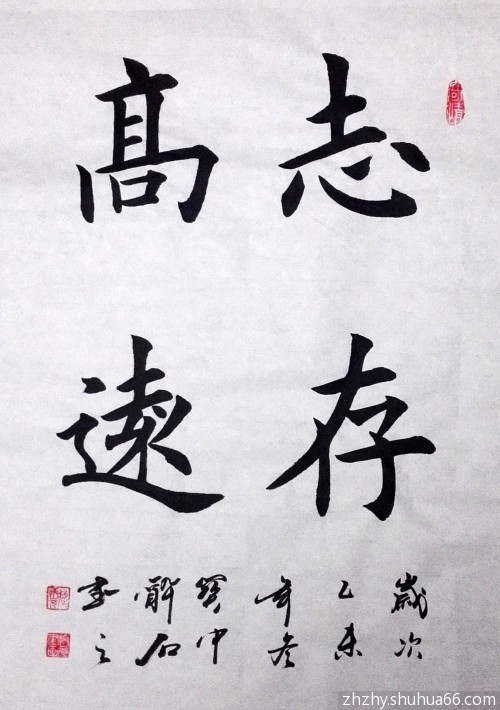 志存
髙遠
歲次
乙未
年冬
醉石
書之
zhzhy.shuhua66.com